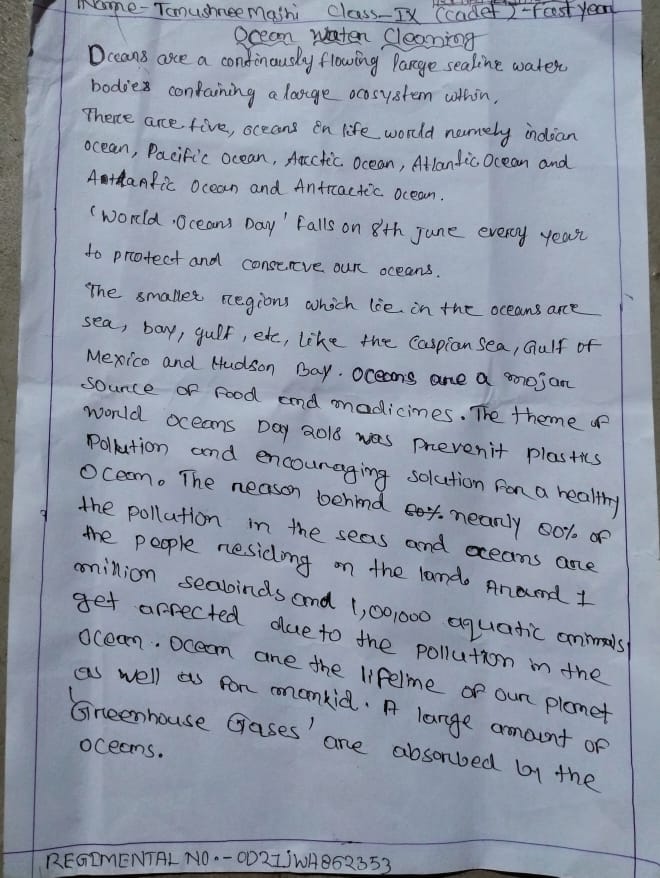 Name - Tanushree Majhi Class - IX (cadet) - First year
Ocean Water Cleaning
Oceans are a continously flowing large sealine water
bodies containing a large ocosystem within,
There are five, oceans in life world namely indian
ocean, Pacific ocean, Arctic ocean, Atlantic Ocean and
Atlantic ocean and Antractic ocean.
'World Oceans Day' falls on 8th june every year
to protect and conserve our oceans.
The smaller regions which lie in the oceans are
sea, bay, gulf, etc, like the Caspian Sea, Gulf of
Mexico and Hudson Bay. Oceans are a major
source of food and madicines. The theme of
World Oceans Day 2018 was Prevenit plastics
Pollution and encouraging solution for a healthy
Ocean. The reason behind 60% nearly 80% of
the pollution in the seas and oceans are
the people residing on the land. Around 1
million seabirds and 1,00,000 aquatic animals
get affected due to the pollution in the
Ocean. Ocean are the lifeline of our planet
as well as for mankid. A large amount of
'Greenhouse Gases' are absorbed by the
oceans.
REGIMENTAL NO.- OD21JWA862353